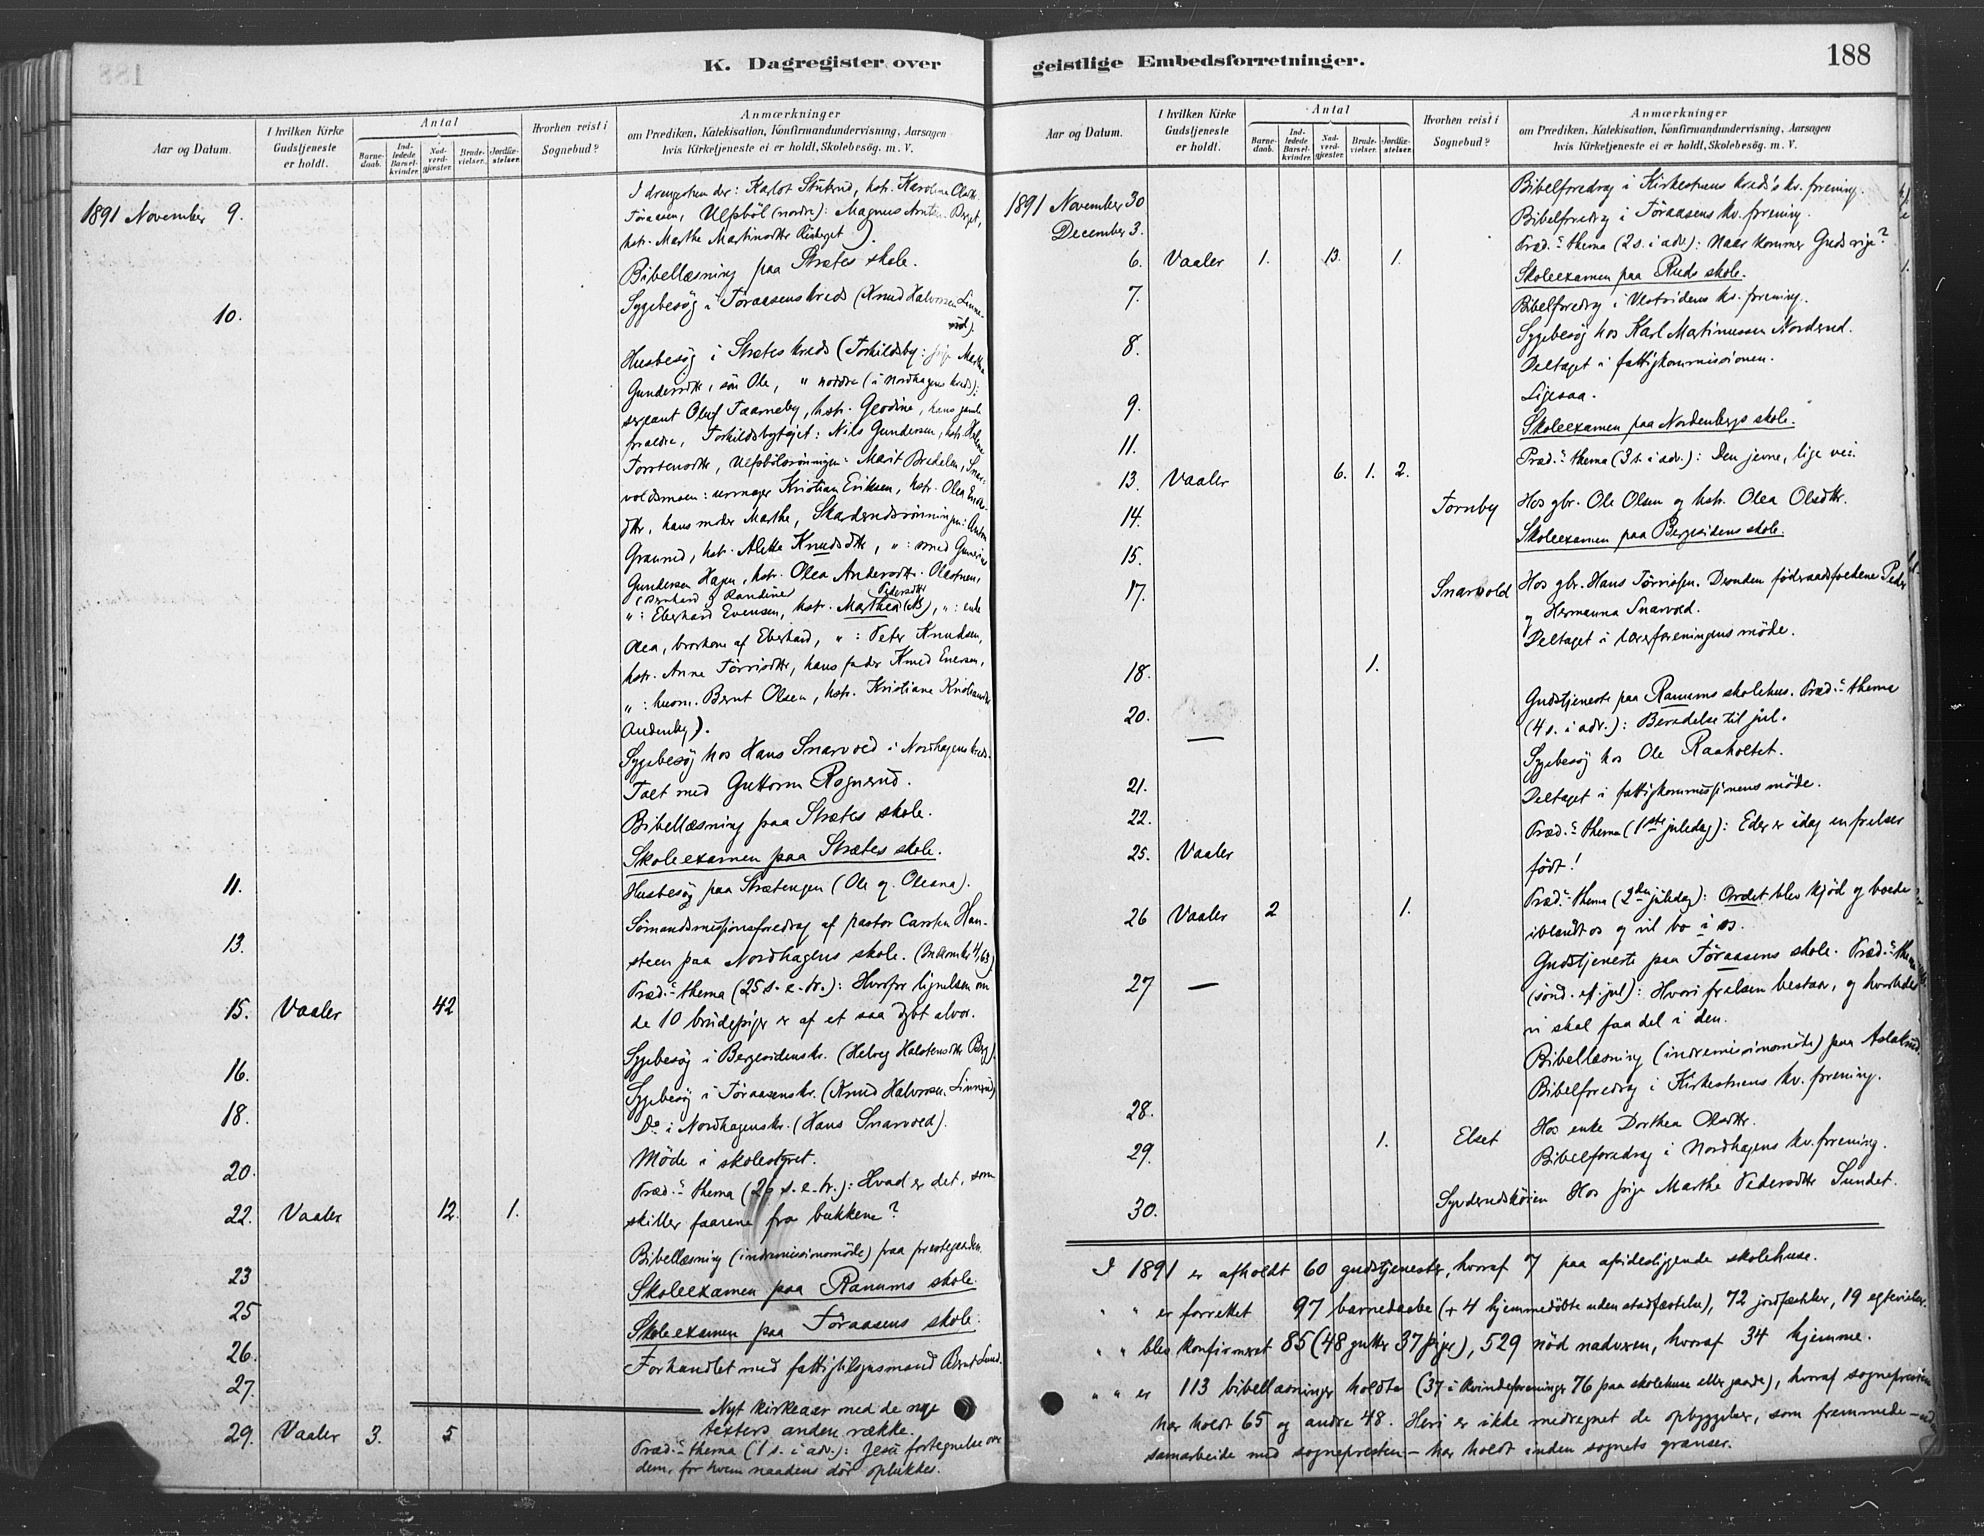 K. Dagregister over
Aar og Datum.
I hvilken Kirke Gudstjeneste er holdt.
Antal
Barnedaab.
Indledede Barselkvinder.
Nadverdgjester.
Brudevielser.
Jordfæstelser.
Hvorhen reist i Sognebud?
Anmærkninger
om Prædiken, Katekisation, Konfirmandundervisning, Aarsagen
hvis Kirketjeneste ei er holdt, Skolebesøg. m. V.
I drengestuen der: Karlot Stubrud, hstr. Karoline Olsdtr.
1891 November 9.
Føraasen, Ulfsböl (nordre): Magnus Arntsen Berget,
hstr. Marthe Martinsdtr
Bibellæsning paa Strætes skole.
Sygebesøg i Føraasens kreds (Knud Halvorsen Linnerud).
10.
Husbesøg i Strætes kreds (Torkildsby: pige Marthe
Gundersdtr, sön Ole, " nordre (i Nordhagens kreds):
sergeant Oluf Taarneby, hstr. Geodine, hans gamle
foraeldre, Torkildsbytøjet: Nils Gundersen, hstr. Helene
Torstensdtr, Ulfsbölrönningen: Marit Bredelen, Snar-
voldsmoen: urmager Kristian Eriksen, hstr. Olea
dtr, hans moder Marthe, Skarderudsrönningen: Anton
Graurud, hstr. Alette Knudsdtr, " : smed Gunerius
Gundersen Hagen, hstr. Olea Andersdtr.
(Bernhard og Randine Pedersdtr
" : Eberhard Evensen, hstr. Marthea (N3), " : enke
Olea, brorkone af Eberhard, " : Peter Knudsen,
hstr. Anne Tørrisdtr, hans fader Knud Enersen,
" : husm. Bernt Olsen, hstr. Kristiane Kristiansdtr
Andenby).
Sygebesøg hos Hans Snarvold i Nordhagens kreds.
Talt med Guttorm Rognerud.
Bibellæsning paa Strætes skole.
Skoleexamen paa Strætes skole.
11.
Husbesøg paa Strætengen (Ole og Oleana).
Sømandsmissionsforedrag af pastor Carsten Han-
13.
steen paa Nordhagens skole. (Indkom kr 4,63).
Præd.s thema (25 s. e. tr.): Hvorfor lignelsen om
15. Vaaler 42
de 10 brudepiger er af et saa dybt alvor.
Sygebesøg i Bergesidens kr. (Helveg Halstensdtr Berg).
16.
Sygebesøg i Føraasens kr. (Knud Halvorsen Linnerud)
18.
Do i Nordhagens kr. (Hans Snarvold).
Møde i skolestyret.
20.
Præd.s thema (26 s. e. tr.): Hvad er det, som
22. Vaaler 12. 1.
skiller faarene fra bukkene?
Bibellæsning (indremissionsmöde) paa prestegaarden.
23
Skoleexamen paa Ranums skole.
25
Skoleexamen paa Føraasens skole.
26.
Forhandlet med fattigtilsynsmand Bernt Lund.
27.
Nyt kirkeaar med de nye
29. Vaaler 3. 5
texters anden række.
Præd.s thema (1 s. i adv.): Jesu fortegnelse over
dem, for hvem naadens dör oplukkes.
geistlige Embedsforretninger.
188
Aar og Datum.
I hvilken Kirke Gudstjeneste er holdt.
Antal
Barnedaab.
Indledede Barselkvinder.
Nadverdgjester.
Brudevielser.
Jordfæstelser.
Hvorhen reist i Sognebud?
Anmærkninger
om Prædiken, Katekisation, Konfirmandundervisning, Aarsagen
hvis Kirketjeneste ei er holdt, Skolebesøg. m. V.
1891 November 30
Bibelforedrag i Kirkestuens kreds's kv. forening.
December 3.
Bibelforedrag i Føraasens kv. forening.
6. Vaaler 1. 13. 1.
Præd.s thema (2 s. i adv.): Naar kommer Guds rige?
7.
Skoleexamen paa Ruds skole.
Bibelforedrag i Vestsidens kv. forening.
8.
Sygebesøg hos Karl Matinussen Nordrud.
Deltaget i fattigkommissionen.
9.
Ligesaa.
11.
Skoleexamen paa Nordenbergs skole.
13. Vaaler 6. 1. 2.
Præd.s thema (3 s. i adv.): Den jevne, lige vei.
14. Tornby
Hos gbr. Ole Olsen og hstr. Olea Olsdtr.
15.
Skoleexamen paa Bergesidens skole.
17. Snarvold
Hos gbr. Hans Tørrissen. Desuden föderaadsfolkene Peder
og Hermanna Snarvold.
Deltaget i lærerforeningens möde.
18. 1.
20.
Gudstjeneste paa Ranums skolehus. Præd.s thema
(4 s. i adv.): Beredelse til jul.
Sygebesøg hos Ole Raaholtet.
21.
Deltaget i fattigkommissionens möde.
22.
25. Vaaler
Præd.s thema (1ste juledag): Eder er idag en frelser
født!
26 Vaaler 2 1.
Præd.s thema (2den juledag): Ordet blev kjød og boede
iblandt os og vil bo i os.
27 —
Gudstjeneste paa Føraasens skole. Præd.s thema
(sönd. ef. jul): Hvori frelsen bestaar, og hvorledes
vi skal faa del i den.
Bibellæsning (indremissionsmöte) paa Aslakrud.
28.
Bibelforedrag i Kirkestuens kv. forening.
29. 1. Elset
Hos enke Dorthea Olsdtr.
Bibelforedrag i Nordhagens kv. forening.
30. Syverudskøien
Hos pige Marthe Pedersdtr Sundet.
I 1891 er afholdt 60 gudstjenester, hvoraf 7 paa afsidesliggende skolehuse.
" " er forrettet 97 barnedaabe (+ 4 hjemmedöbte uden stadfæstelse), 72 jordfæstelser, 19 egtevielser.
" " blev konfirmeret 85 (48 gutter 37 piger), 529 nöd nadveren, hvoraf 34 hjemme.
" " er 113 bibellæsninger holdte (37 i kvindeforeninger 76 paa skolehuse eller gaarde), hvoraf sognepresten
har holdt 65 og andre 48. Heri er ikke medregnet de opbyggelser, som fremmede –
samarbeide med sognepresten – har holdt inden sognets grænser.